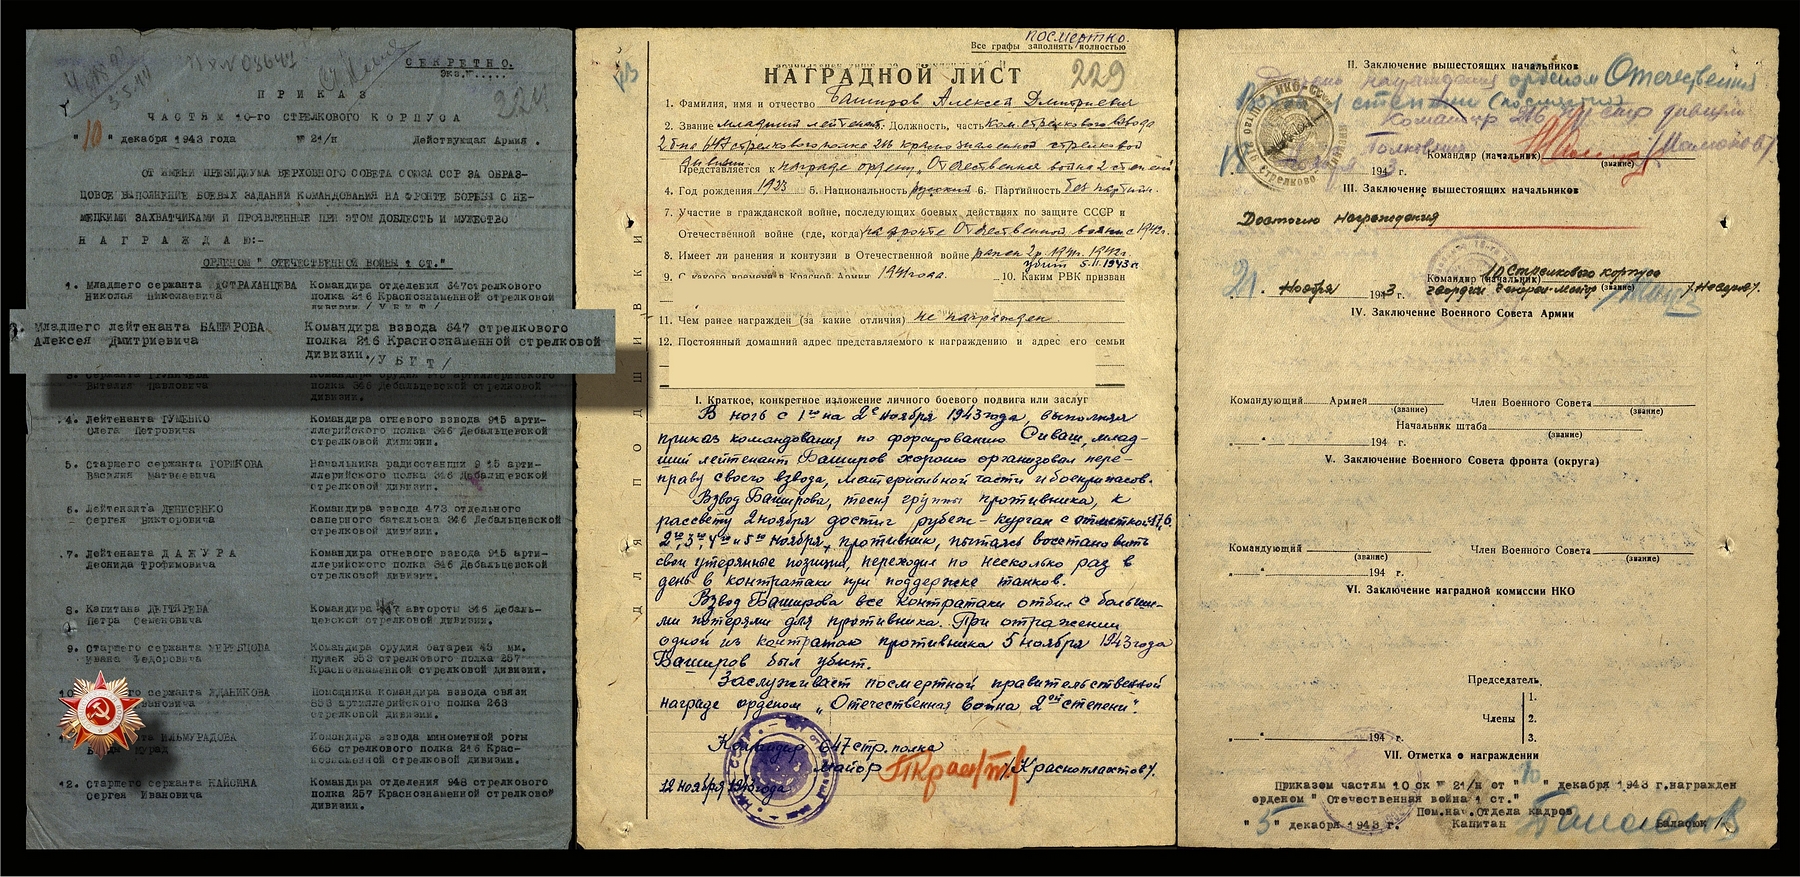 СЕКРЕТНО.
Экз.№.....
П Р И К А З
ЧАСТЯМ 10-го СТРЕЛКОВОГО КОРПУСА
"10" декабря 1943 года № 21/н Действующая Армия.
ОТ ИМЕНИ ПРЕЗИДИУМА ВЕРХОВНОГО СОВЕТА СОЮЗА ССР ЗА ОБРАЗ-
ЦОВОЕ ВЫПОЛНЕНИЕ БОЕВЫХ ЗАДАНИЙ КОМАНДОВАНИЯ НА ФРОНТЕ БОРЬБЫ С НЕ-
МЕЦКИМИ ЗАХВАТЧИКАМИ И ПРОЯВЛЕННЫЕ ПРИ ЭТОМ ДОБЛЕСТЬ И МУЖЕСТВО
Н А Г Р А Ж Д А Ю:-
ОРДЕНОМ "ОТЕЧЕСТВЕННОЙ ВОЙНЫ 1 СТ."
1. Младшего сержанта АСТРАХАНЦЕВА Командира отделения 347стрелкового
Николая Николаевича полка 216 Краснознаменной стрелковой
Младшего лейтенанта БАШИРОВА Командира взвода 647 стрелкового
Алексея Дмитриевича полка 216 Краснознаменной стрелковой
дивизии. /УБИТ/
Виталия Павловича полка 346 Дебальцевской стрелковой
дивизии.
4. Лейтенанта ГУМЕНКО Командира огневого взвода 915 арти-
Олега Петровича ллерийского полка 346 Дебальцевской
стрелковой дивизии.
5. Старшего сержанта ГОРЯКОВА Начальника радиостанции 915 арти-
Василия Матвеевича ллерийского полка 346 Дебальцевской
стрелковой дивизии.
6. Лейтенанта ДЕНИСЕНКО Командира взвода 473 отдельного
Сергея Викторовича саперного баталъона 346 Дебальцевской
стрелковой дивизии.
7. Лейтенанта Д А Ж У Р А Командира огневого взвода 915 арти-
Леонида Трофимовича ллерийского полка 346 Дебальцевской
стрелковой дивизии.
8. Капитана ДЕГТЯРЕВА Командира автороты 346 Дебаль-
Петра Семеновича цевской стрелковой дивизии.
9. Старшего сержанта Командира орудия батареи 45 мм.
Ивана Федоровича пушек 953 стрелкового полка 257
Краснознаменной стрелковой дивизии.
10. сержанта ЖДАНИКОВА Помощника командира взвода связи
853 артиллерийского полка 263
стрелковой дивизии.
ИЛЬМУРАДОВА Командира взвода минометной роты
665 стрелкового полка 216 Крас-
нознаменной стрелковой дивизии.
12. Старшего сержанта КАЙСИНА Командира отделения 948 стрелкового
Сергея Ивановича полка 257 Краснознаменной стрелковой
дивизии.
посмертно.
Все графы заполнять полностью
НАГРАДНОЙ ЛИСТ 229
1. Фамилия, имя и отчество Баширов Алексей Дмитриевич
2. Звание младший лейтенант. Должность, часть Ком. стрелкового взвода
2 б-на 647 стрелкового полка 216 краснознаменной стрелковой
дивизии.
Представляется к награде ордену „Отечественная война 2 степени"
4. Год рождения 1923 5. Национальность русский 6. Партийность без партии.
7. Участие в гражданской войне, последующих боевых действиях по защите СССР и
Отечественной войне (где, когда) на фронте Отечественной войны с 1942г.
8. Имеет ли ранения и контузии в Отечественной войне ранен 2 р. 1941г. 1942г.
убит 5.11.1943г.
9. С какого времени в Красной Армии 1941 года. 10. Каким РВК призван
11. Чем ранее награжден (за какие отличия) не награжден
12. Постоянный домашний адрес представляемого к награждению и адрес его семьи
I. Краткое, конкретное изложение личного боевого подвига или заслуг
В ночь с 1го на 2е ноября 1943 года, выполняя
приказ командования по форсированию Сиваш, млад-
ший лейтенант Баширов хорошо организовал пере-
праву своего взвода, материальной части и боеприпасов.
Взвод Баширова, тесня группы противника, к
рассвету 2 ноября достиг рубеж - курган с отметкой 17,6.
2го, 3го, 4го и 5го ноября, противник, пытаясь восстановить
свои утерянные позиции, переходил по несколько раз в
день в контратаки при поддержке танков.
Взвод Баширова все контратаки отбил с больши-
ми потерями для противника. При отражении
одной из контратак противника 5 ноября 1943 года
Баширов был убит.
Заслуживает посмертной правительственной
награде орденом „Отечественная война 2ой степени".
Командир 647 стр. полка
майор /Краснопахтов/.
12 ноября 1943 года
ДЛЯ ПОДШИВКИ
II. Заключение вышестоящих начальников
Достоин награждения орденом Отечественная
война 1 степени (посмертно)
Командир 216 стр дивизии
Полковник /Малюков/
Командир (начальник)
(звание)
194 3 г.
III. Заключение вышестоящих начальников
Достоин награждения
Командир 10 Стрелкового корпуса
(начальник) (звание)
21. Ноября 1943 г. гвардии Генерал-майор /Неверов/.
IV. Заключение Военного Совета Армии
Командующий Армией Член Военного Совета
(звание) (звание)
Начальник штаба
(звание)
„ " 194 г.
V. Заключение Военного Совета фронта (округа)
Командующий Член Военного Совета
(звание) (звание)
„ " 194 г.
VI. Заключение наградной комиссии НКО
Председатель
1.
Члены 2.
3.
„ " 194 г.
VII. Отметка о награждении
Приказом частям 10 ск № 21/н от "10" декабря 1943 г.награжден
орденом " Отечественная война 1 ст."
Пом.нач.Отдела кадров
"5" декабря 1943 г. Капитан Балабюк